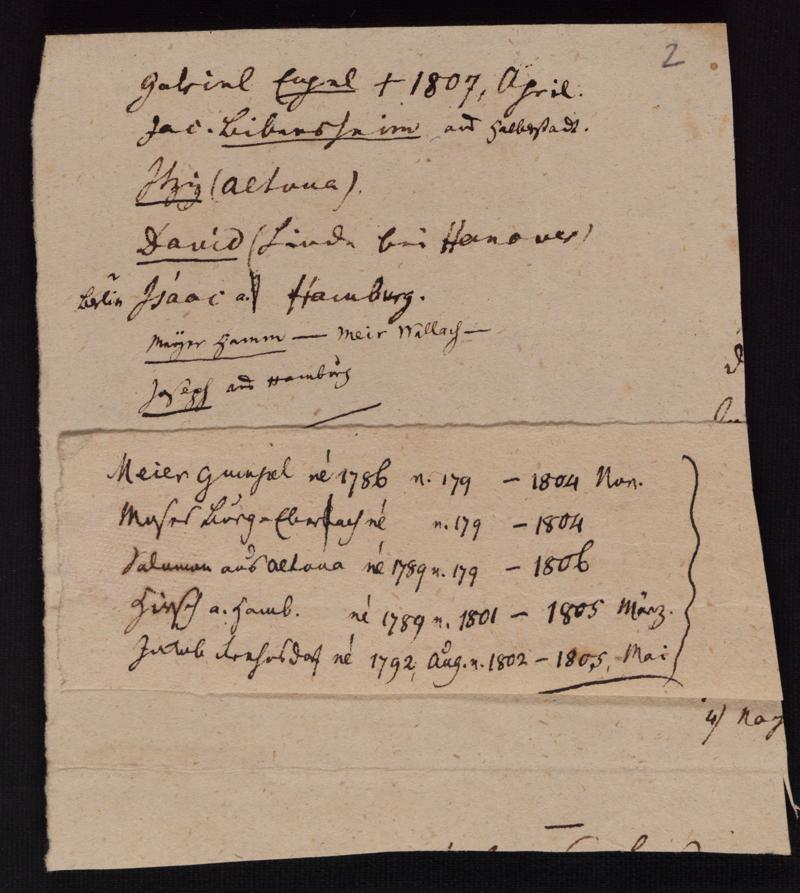 2
Gabriel Engel + 1807, April.
Jac. Bibersheim aus Halberstadt.
Itzig (Altona).
David (Linde bei Hanover)
Berlin Isaac a. Hamburg.
Meyer Hamm — Meir Wallach —
Joseph aus Hamburg
Meier Gumpel né 1786 n. 179 – 1804 Nov.
Moses Burg-Ebersbach né n. 179 – 1804
Salomon aus Altona né 1789 n. 179 – 1806
Hirsch a. Hamb. né 1789 n. 1801 – 1805 März.
Jakob né 1792, Aug. n. 1802 – 1805, Mai
4)